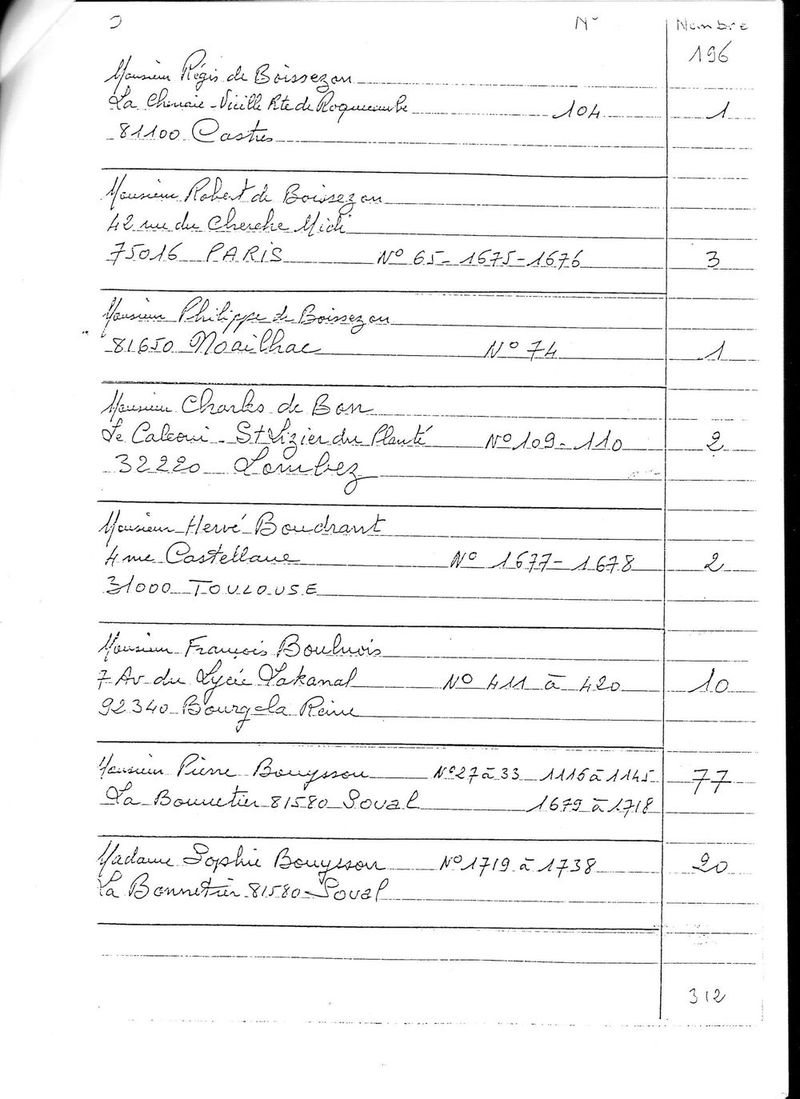 N° Nombre
196
Monsieur Régis de Boissezon
La Chenaie - Vieille Rte de Roquecourbe 104 1
81100 Castres
Monsieur Robert de Boissezon
42 rue du Cherche Midi
75016 PARIS N° 65 - 1675 - 1676 3
Monsieur Philippe de Boissezon
81650 Noailhac N° 74 1
Monsieur Charles de Bon
Le - St Lizier du Planté N° 109 - 110 2
32220 Lombez
Monsieur Hervé Boudrant
4 rue Castellane N° 1677 - 1678 2
31000 TOULOUSE
Monsieur François Boulnois
7 Av du Lycée Lakanal N° 411 à 420 10
92340 Bourg la Reine
Monsieur Pierre Bouysson N° 27 à 33 1116 à 1145 77
La Bonnetier 81580 Soual 1679 à 1718
Madame Sophie Bouysson N° 1719 à 1738 20
La Bonnetier 81580 - Soual
312